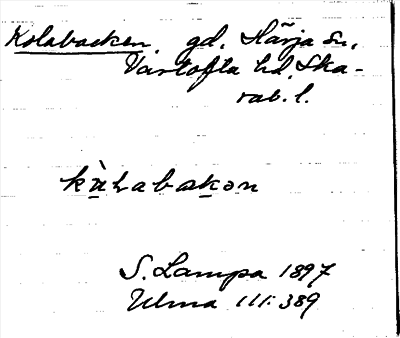 Kolabacken, gd. Härja sn,
Vartofta hd, Ska-
rab. l.
kùLabakən
S. Lampa 1897
Ulma 111:389